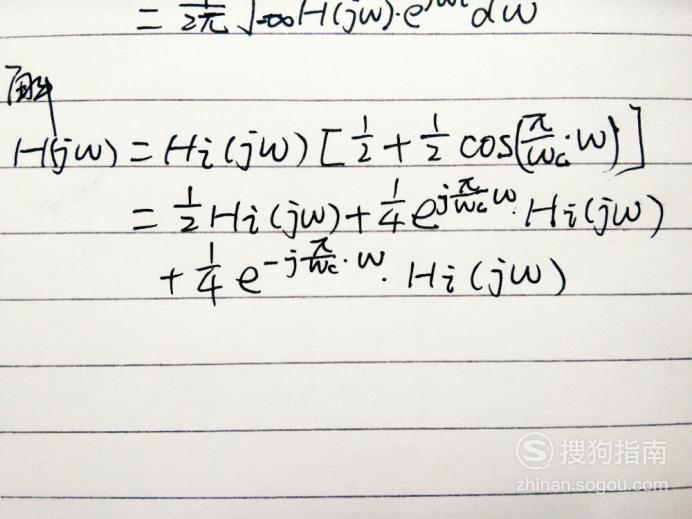 = 1/2π ∫-∞ H(jω)·e^jωt dω
解
H(jω) = Hi(jω) [ 1/2 + 1/2 cos(π/ωc·ω) ]
= 1/2 Hi(jω) + 1/4 e^jπ/ωc ω · Hi(jω)
+ 1/4 e^-jπ/ωc·ω · Hi(jω)
S 搜狗指南
zhinan.sogou.com